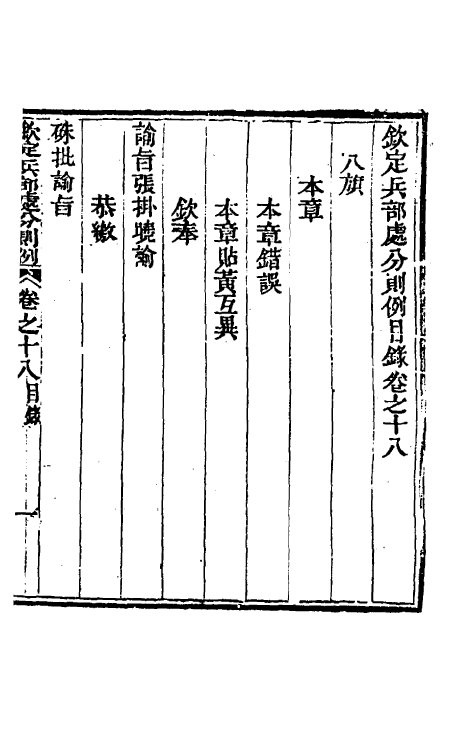 欽定兵部處分則例目錄卷之十八
八旗
本章
本章錯誤
本章貼黃互異
欽奉
諭旨張掛曉諭
恭繳
硃批諭旨
欽定兵部處分則例 卷之十八目錄 一